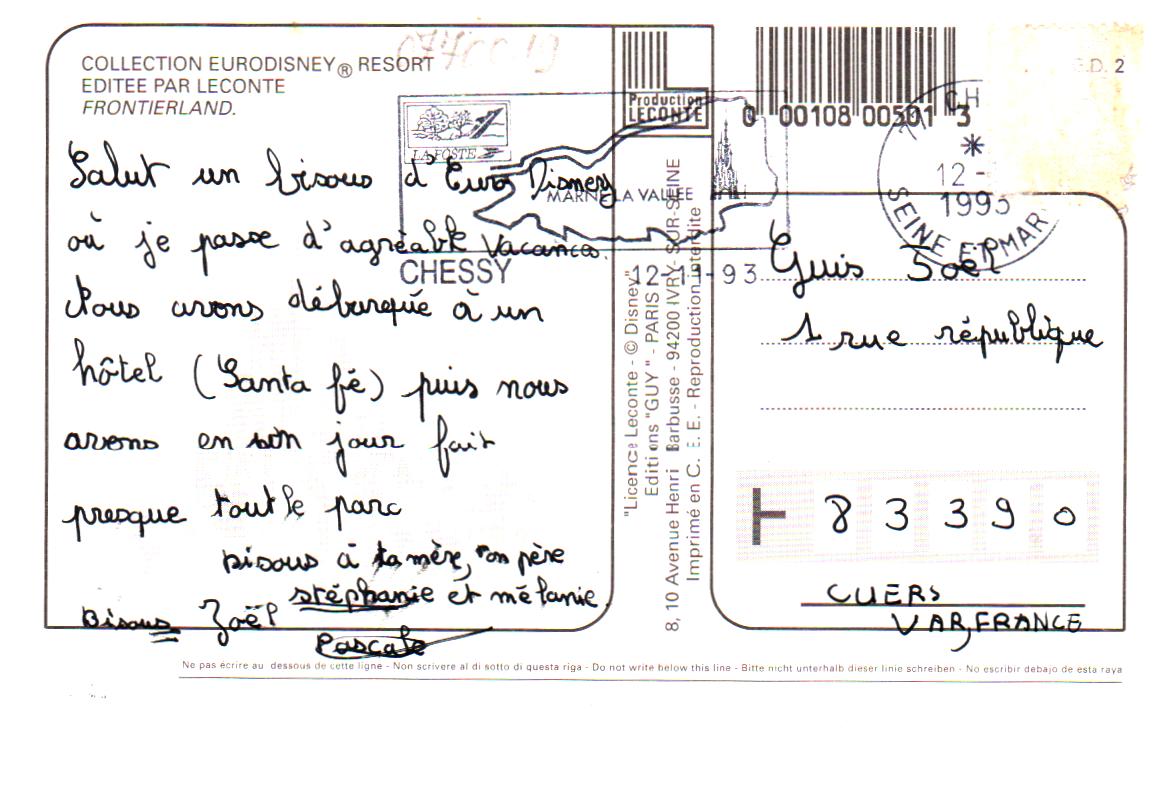 COLLECTION EURODISNEY® RESORT
EDITEE PAR LECONTE
FRONTIERLAND.
0770019
Salut un bisous d'Euro Disney
où je passe d'agréable Vacances.
Nous avons débarquée à un
hôtel (Santa fé) puis nous
avons en son jour fait
presque tout le parc
Bisous à ta mère, ton père
stéphanie et mélanie.
Bisous Zoël
Pascale
LA POSTE
MARNE LA VALLEE
CHESSY
12-11-93
Production
LECONTE
"Licence Leconte - © Disney"
Editions "GUY" - PARIS
8, 10 Avenue Henri Barbusse - 94200 IVRY-SUR-SEINE
Imprimé en C. E. E. - Reproduction interdite
0 00108 00501 3
D. 2
77 CH
12-
1993
SEINE ET MAR
Guis Joël
1 rue république
83390
CUERS
VAR, FRANCE
Ne pas écrire au dessous de cette ligne - Non scrivere al di sotto di questa riga - Do not write below this line - Bitte nicht unterhalb dieser linie schreiben - No escribir debajo de esta raya